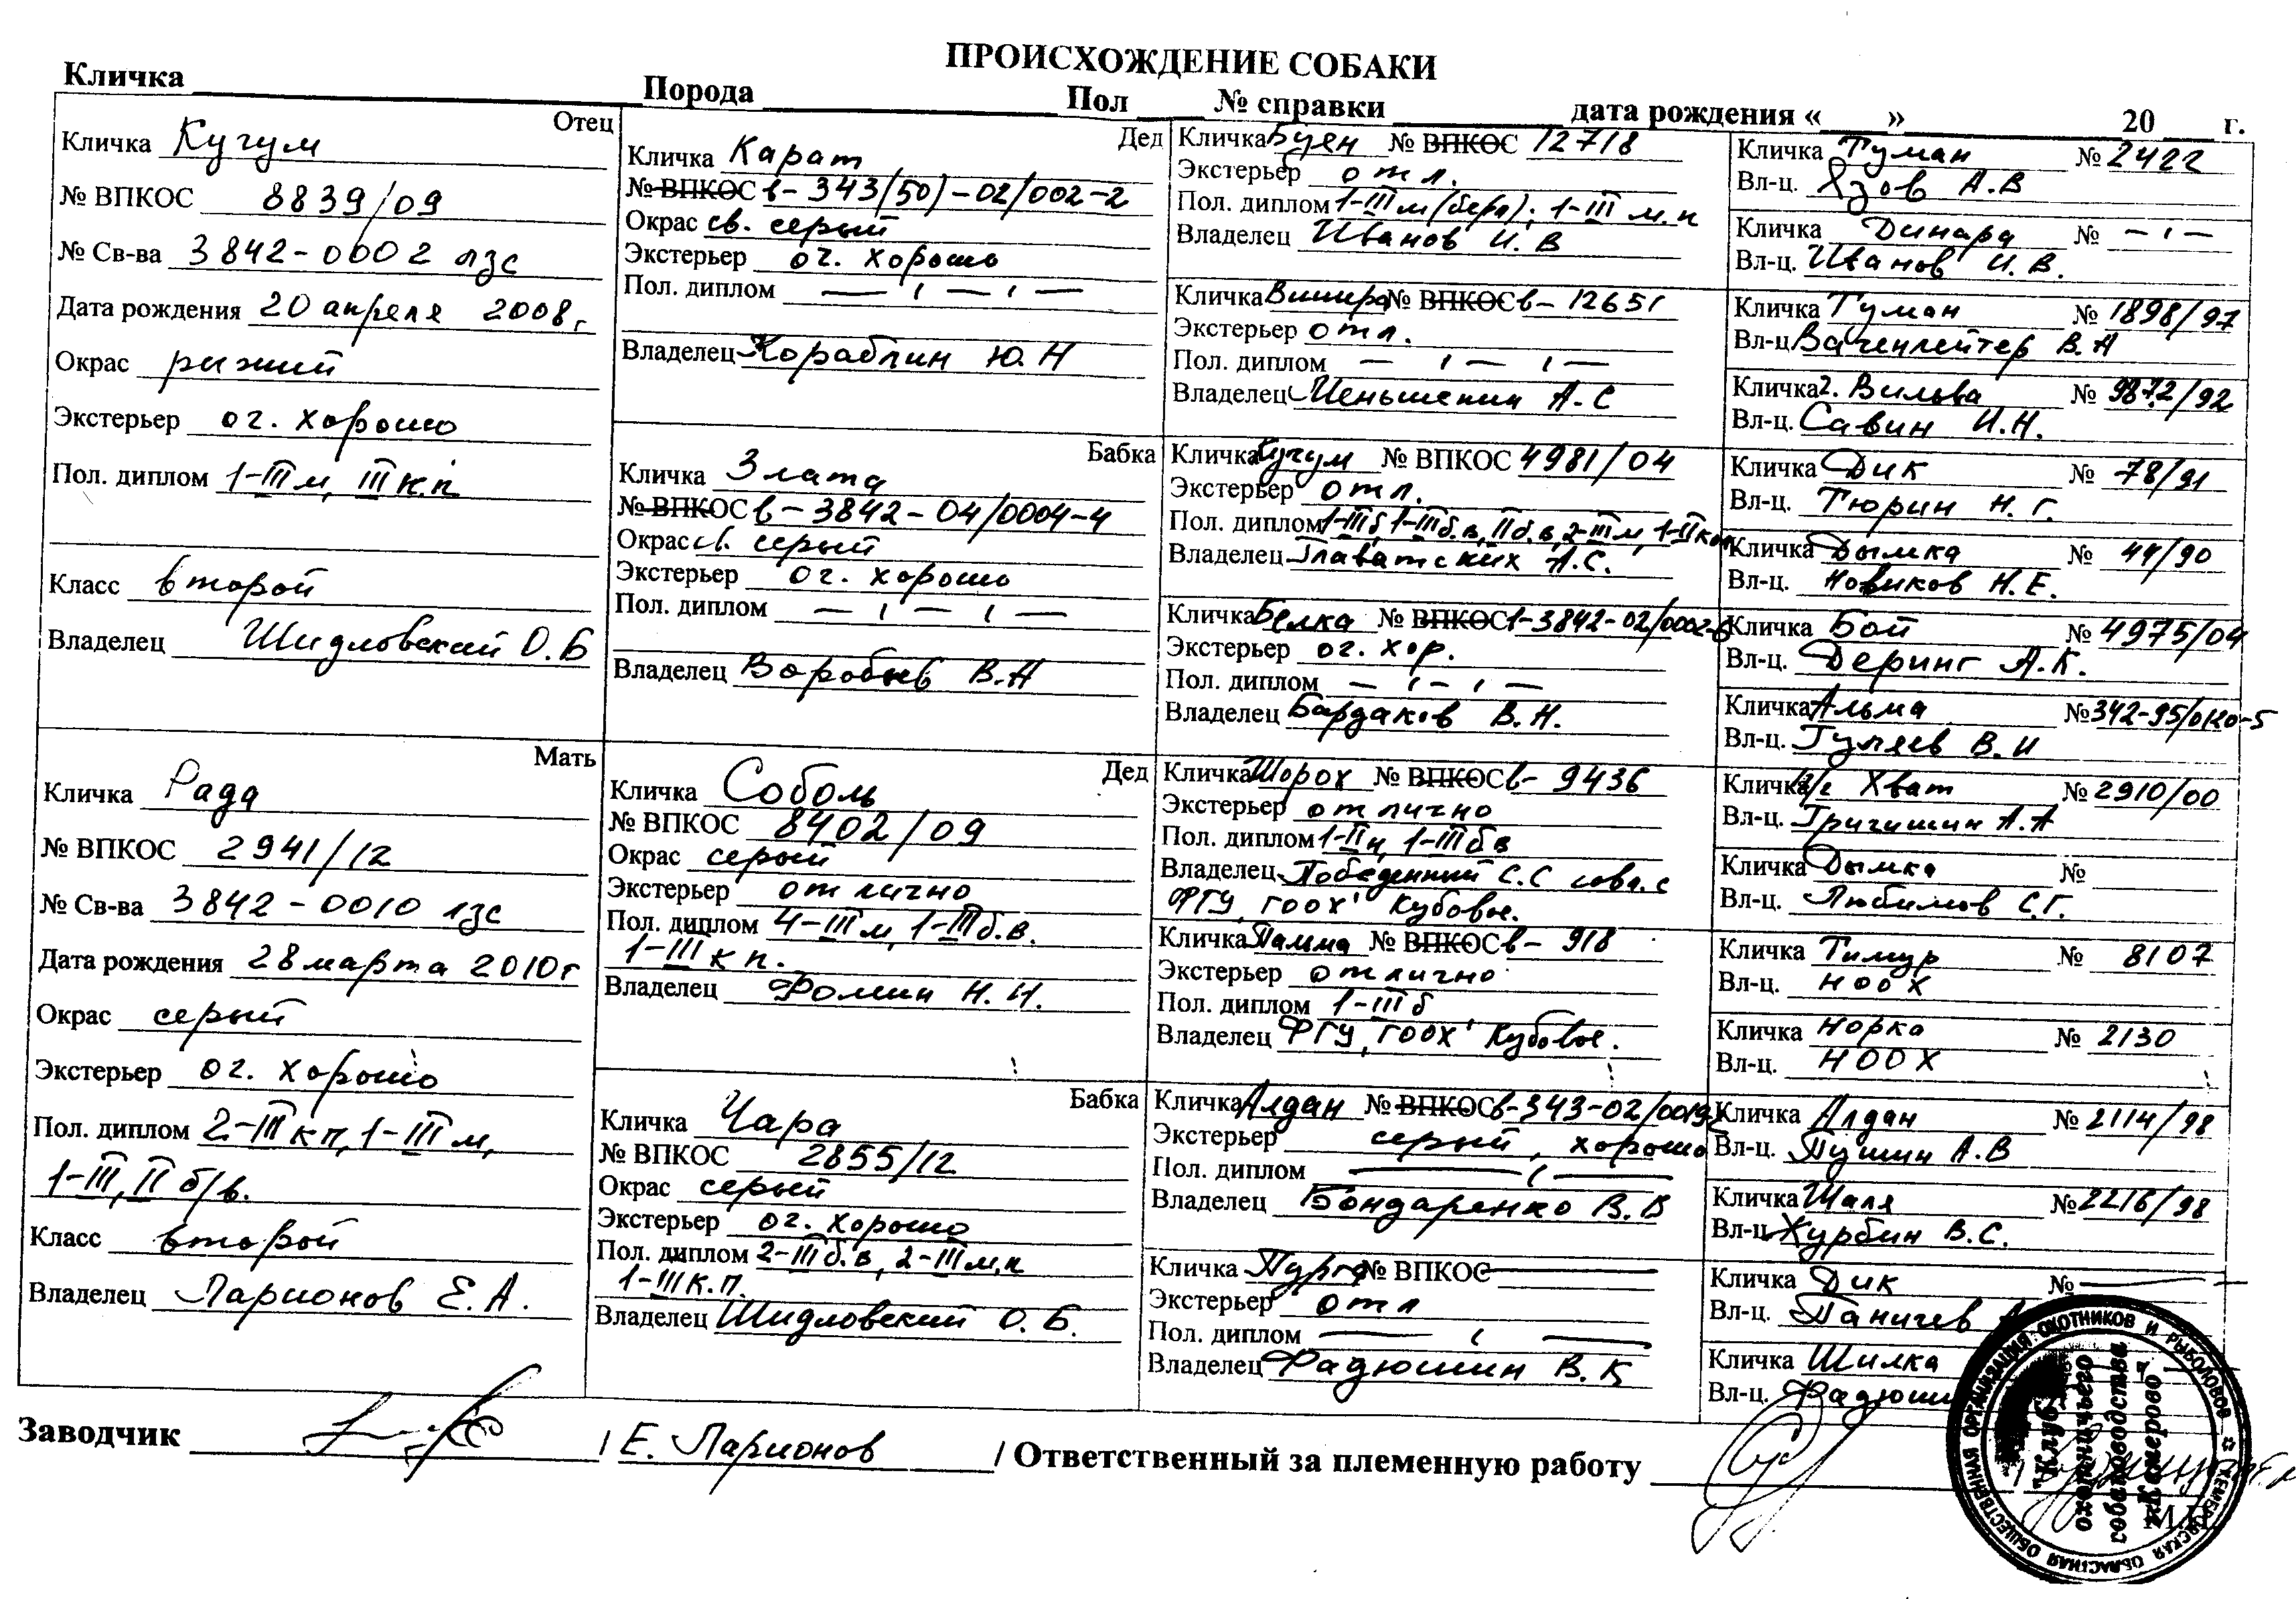 ПРОИСХОЖДЕНИЕ СОБАКИ
Кличка Порода Пол № справки дата рождения « » 20 г.
Отец
Кличка Кучум
№ ВПКОС 8839/09
№ Св-ва 3842-0002 лзс
Дата рождения 20 апреля 2008г
Окрас рыжий
Экстерьер оч. хорошо
Пол. диплом 1-III м, III к.п
Класс второй
Владелец Шидловский О.Б
Мать
Кличка Рада
№ ВПКОС 2941/12
№ Св-ва 3842-0010 лзс
Дата рождения 28 марта 2010г
Окрас серый
Экстерьер оч. хорошо
Пол. диплом 2-III кп, 1-III м,
1-III, II б/в.
Класс второй
Владелец Ларионов Е.А.
Дед
Кличка Карат
№ ВПКОС в-343(50)-02/002-2
Окрас св. серый
Экстерьер оч. хорошо
Пол. диплом — ı — ı —
Владелец Кораблин Ю.Н
Бабка
Кличка Злата
№ ВПКОС в-3842-04/0004-4
Окрас св. серый
Экстерьер оч. хорошо
Пол. диплом — ı — ı —
Владелец Воробьев В.А
Дед
Кличка Соболь
№ ВПКОС 8402/09
Окрас серый
Экстерьер отлично
Пол. диплом 4-III м, 1-III б.в.
1-III к п.
Владелец Фомин Н.И.
Бабка
Кличка Чара
№ ВПКОС 2855/12
Окрас серый
Экстерьер оч. хорошо
Пол. диплом 2-III б.в, 2-III м,п
1-III к.п.
Владелец Шидловский О.Б.
Кличка Буен № ВПКОС 12718
Экстерьер отл.
Пол. диплом 1-III м (берл); 1-III м.п
Владелец Иванов И.В
Кличка Вишера № ВПКОС в-12651
Экстерьер отл.
Пол. диплом — ı — ı —
Владелец Меньшенин А.С
Кличка Кучум № ВПКОС 4981/04
Экстерьер отл.
Пол. диплом 1-III б, 1-III б.в, II б.в, 2-III м, 1-II коп
Владелец Главатских А.С.
Кличка Белка № ВПКОС 1-3842-02/0002-6
Экстерьер оч. хор.
Пол. диплом — ı — ı —
Владелец Бардаков В.Н.
Кличка Шорох № ВПКОС в-9436
Экстерьер отлично
Пол. диплом 1-II н, 1-III б в
Владелец Победенный С.С совл. с
ФГУ, ГООХ' Кубовое.
Кличка Пальма № ВПКОС в-918
Экстерьер отлично
Пол. диплом 1-III б
Владелец ФГУ, ГООХ' Кубовое.
Кличка Алдан № ВПКОС в-343-02/0019
Экстерьер серый, хорошо
Пол. диплом — ı —
Владелец Бондаренко В.В
Кличка Пурга № ВПКОС —
Экстерьер отл
Пол. диплом — ı —
Владелец Фадюшин В.К
Кличка Туман № 2422
Вл-ц. Язов А.В
Кличка Динара № - ı -
Вл-ц. Иванов И.В.
Кличка Туман № 1898/97
Вл-ц Вагенлейтер В.А
Кличка ч. Вильва № 9872/92
Вл-ц. Савин И.Н.
Кличка Дик № 78/91
Вл-ц. Тюрин Н.Г.
Кличка Дымка № 44/90
Вл-ц. Новиков Н.Е.
Кличка Бой № 4975/04
Вл-ц. Деринг А.К.
Кличка Альма № 342-95/0120-5
Вл-ц. Гуляев В.И
Кличка Хват № 2910/00
Вл-ц. Григишин А.А
Кличка Дымка №
Вл-ц. Любимов С.Г.
Кличка Тимур № 8107
Вл-ц. НООХ
Кличка Норка № 2130
Вл-ц. НООХ
Кличка Алдан № 2114/98
Вл-ц. Пушин А.В
Кличка Шаля № 2216/98
Вл-ц Журбин В.С.
Кличка Дик № —
Вл-ц. Паничев
Кличка Шилка
Вл-ц. Фадюшин
Заводчик / Е. Ларионов / Ответственный за племенную работу
М.П.
КЕМЕРОВСКАЯ ОБЛАСТНАЯ ОБЩЕСТВЕННАЯ ОРГАНИЗАЦИЯ ОХОТНИКОВ И РЫБОЛОВОВ
"Клуб
охотничьего
собаководства
г.Кемерово"